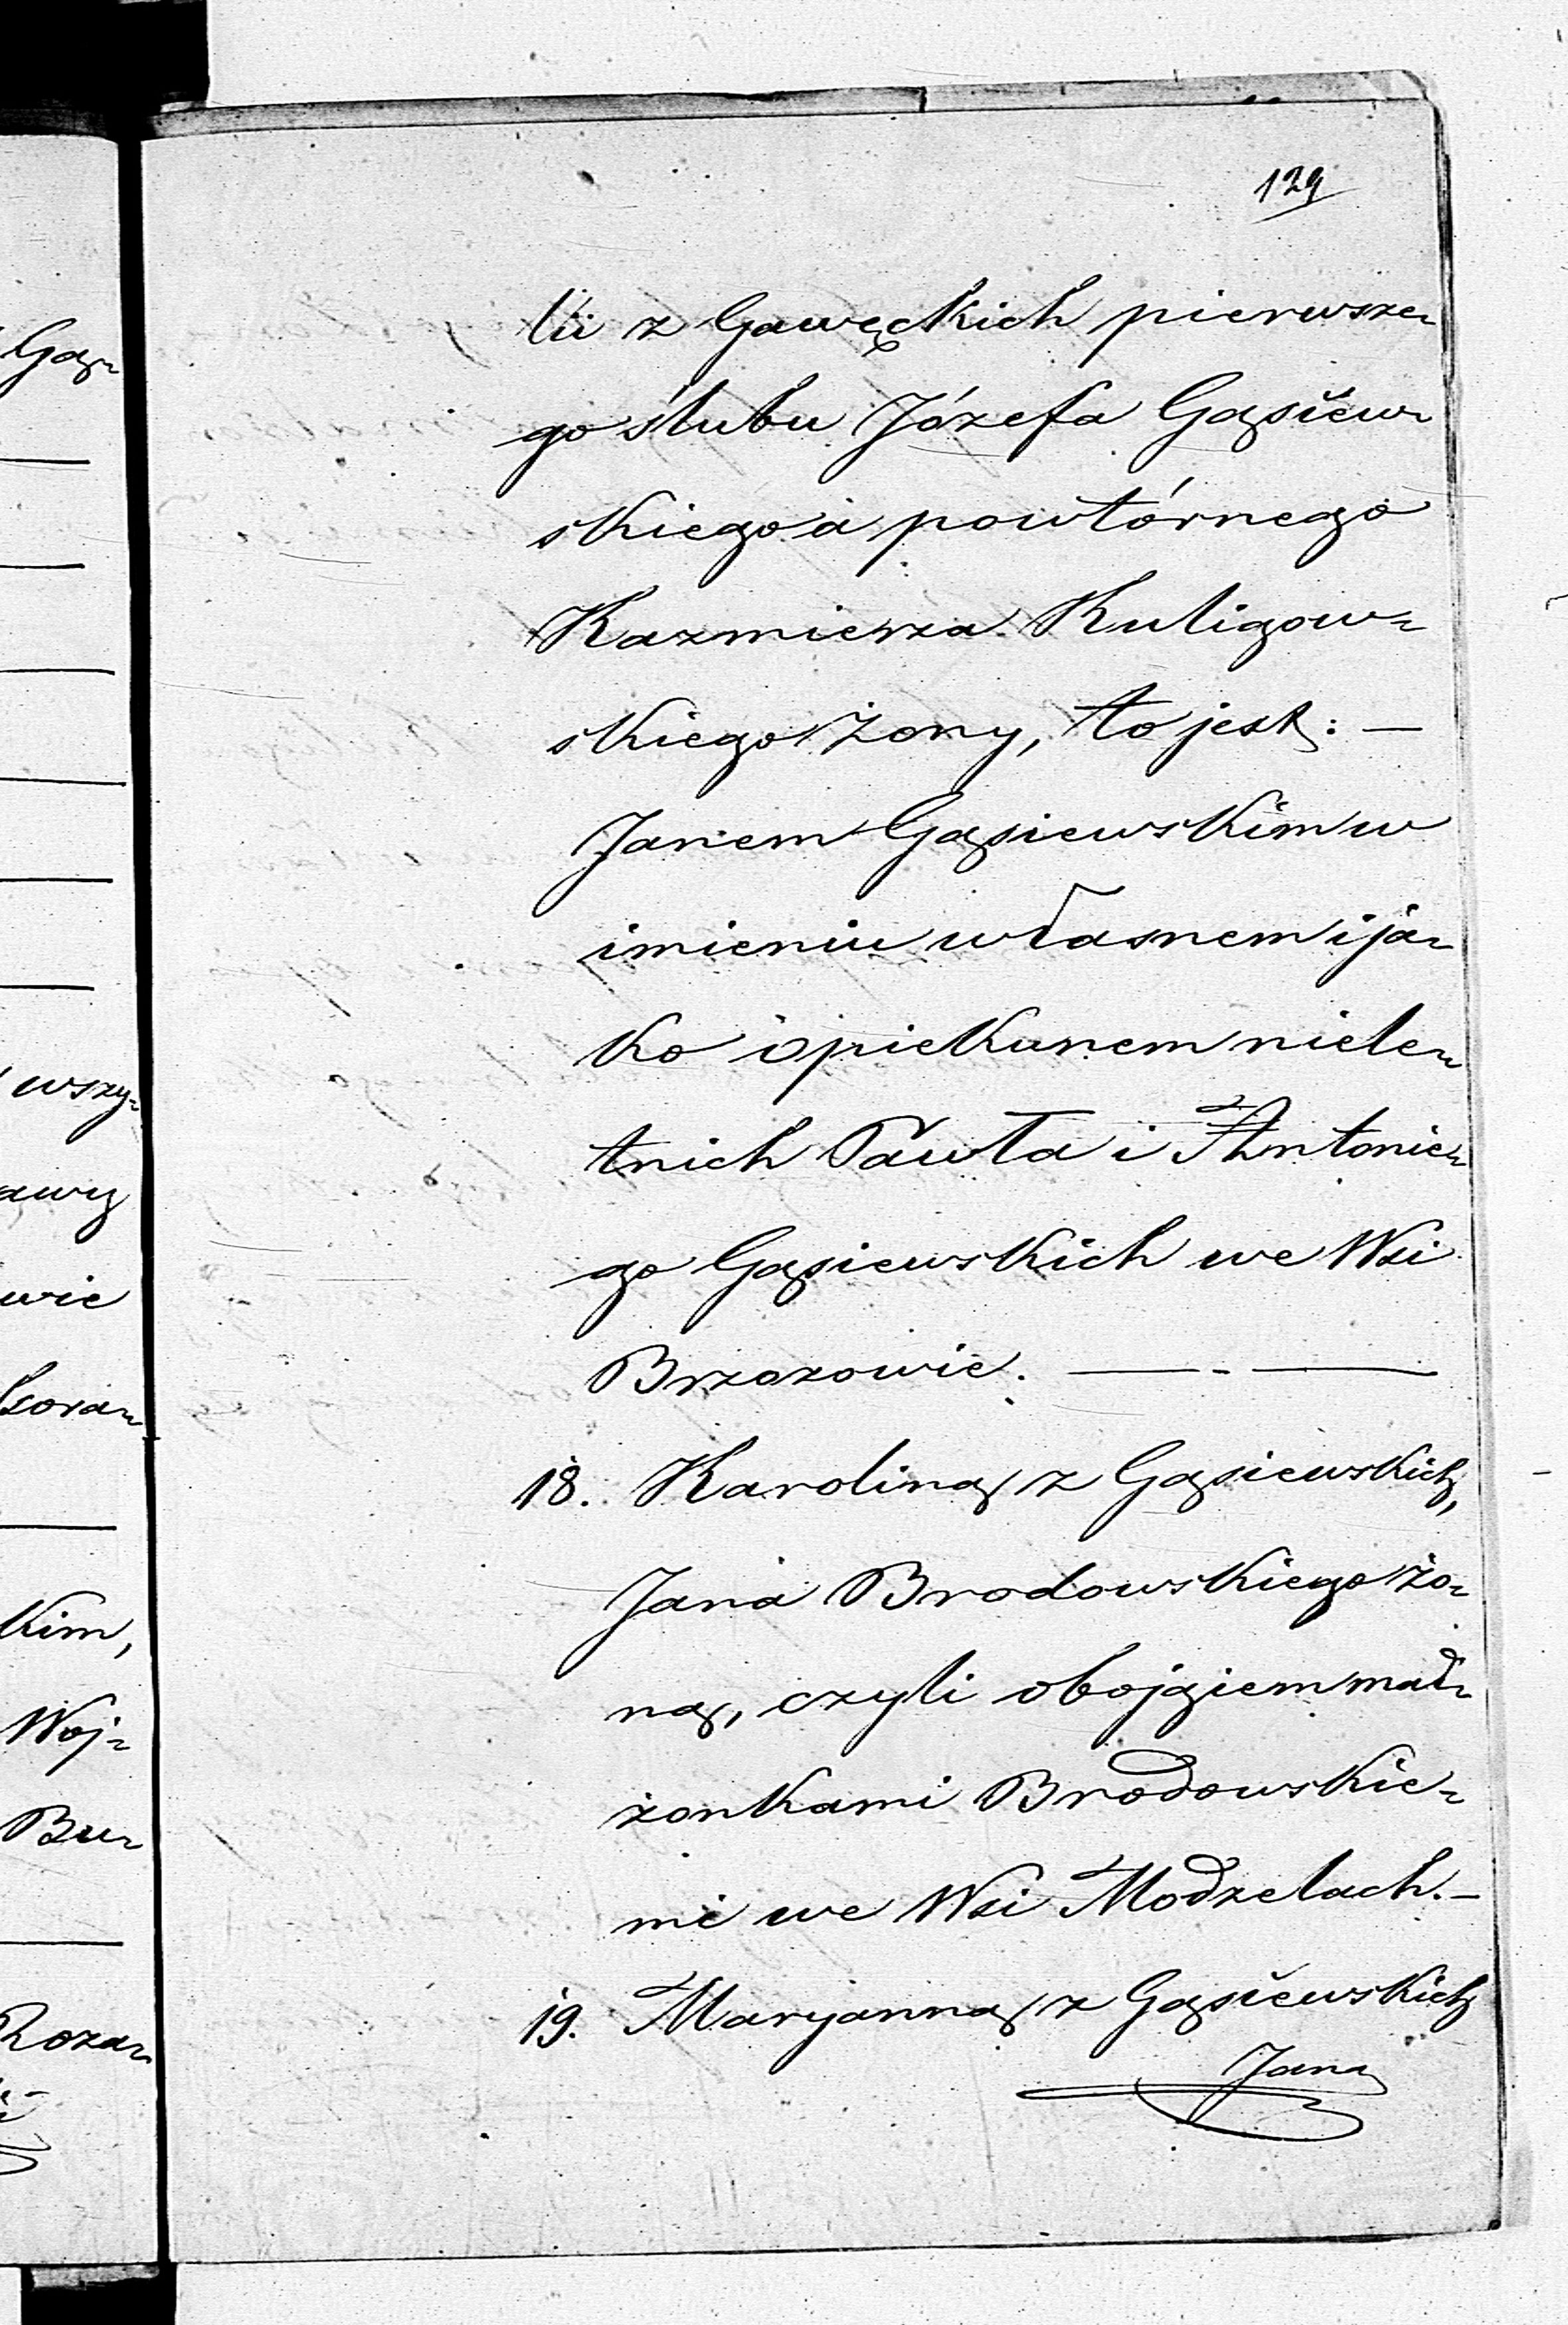 129
lii z Gawęckich pierwsze-
go ślubu Józefa Gąsiew-
skiego a powtórnego
Kazmierza Kuligow-
skiego żony, to jest: —
Janem Gąsiewskim w
imieniu własnem i ja-
ko opiekunem niele-
tnich Pawła i Antonie-
go Gąsiewskich we Wsi
Brzozowie. — - —
18. Karoliną z Gąsiewskich,
Jana Brodowskiego żo-
ną, czyli obojgiem mał-
żonkami Brodowskie-
mi we Wsi Modzelach. —
19. Maryanną z Gąsiewskich
Jana
Gą-
wszy-
awy
wie
kim,
Woj-
Bu-
Roza-